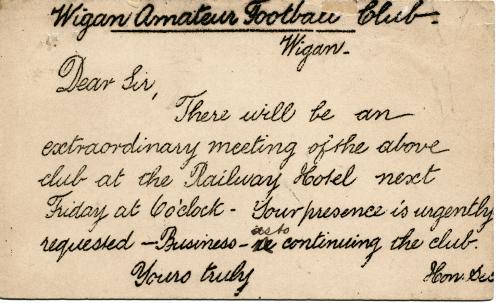 Wigan Amateur Football Club.
Wigan.
Dear Sir,
There will be an
extraordinary meeting of the above
club at the Railway Hotel next
Friday at 6o'clock - Your presence is urgently
requested - Business - as to continuing the club.
Yours truly Hon. Sec